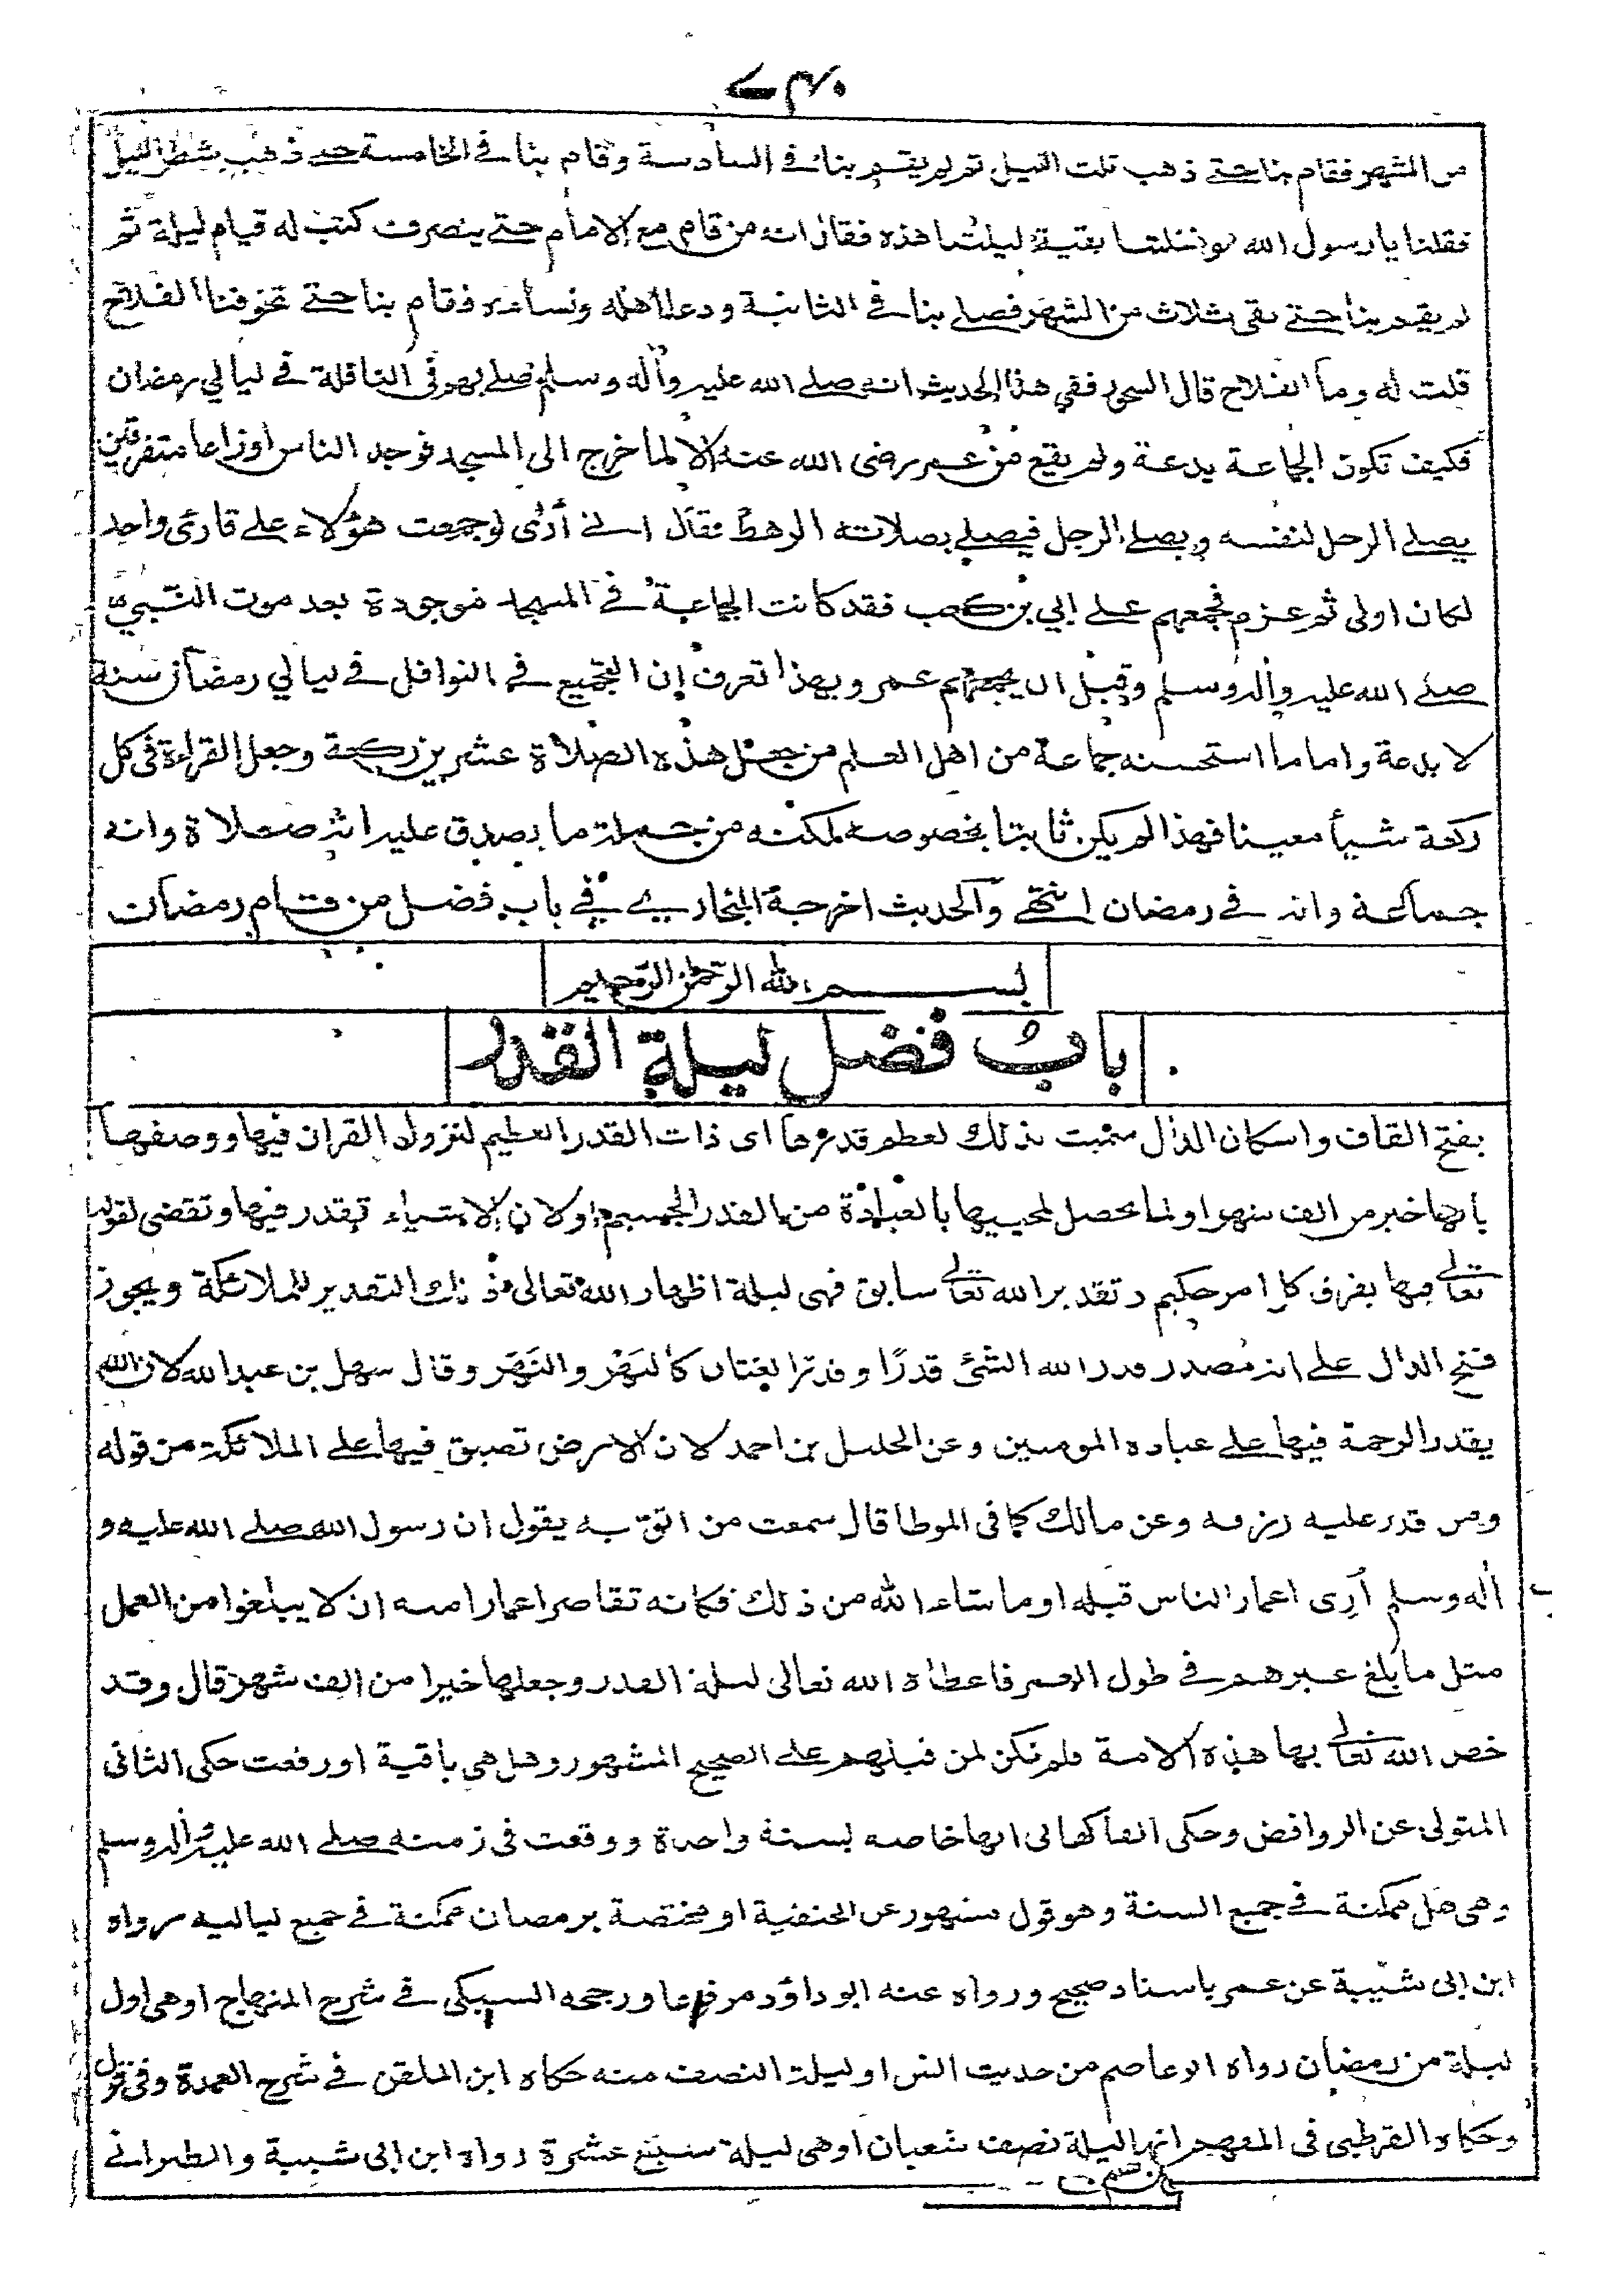 من الشهر فقام بنا حتى ذهب ثلث الليل ثم لم يقم بنا في السادسة وقام بنا في الخامسة حتى ذهب شطر الليل
فقلنا يا رسول الله لو نفلتنا بقية ليلتنا هذه فقال انه من قام مع الامام حتى ينصرف كتب له قيام ليلة ثم
لم يقم بنا حتى بقي ثلاث من الشهر فصلى بنا في الثانية ودعا أهله ونساءه فقام بنا حتى تخوفنا الفلاح
قلت له وما الفلاح قال السحور ففي هذا الحديث انه صلى الله عليه وآله وسلم صلى بهم في النافلة في ليالي رمضان
فكيف تكون الجماعة بدعة ولم يقع من عمر رضى الله عنه الا لما خرج الى المسجد فوجد الناس اوزاعا متفرقين
يصلى الرجل لنفسه ويصلى الرجل فيصلى بصلاته الرهط فقال انى أرى لو جمعت هؤلاء على قارئ واحد
لكان اولى ثم عزم فجمعهم على ابي بن كعب فقد كانت الجماعة في المسجد موجودة بعد موت النبي
صلى الله عليه وآله وسلم وقبل ان يجمعهم عمر وبهذا تعرف إن التجميع في النوافل في ليالي رمضان سنة
لا بدعة واما ما استحسنه جماعة من اهل العلم من جعل هذه الصلاة عشرين ركعة وجعل القراءة في كل
ركعة شيأ معينا فهذا لم يكن ثابتا بخصوصه لكنه من جملة ما يصدق عليه انه صلاة وانه
جماعة وانه في رمضان انتهى والحديث اخرجه البخاري في باب فضل من قام رمضان
بسم الله الرحمن الرحيم
باب فضل ليلة القدر
بفتح القاف واسكان الدال سميت بذلك لعظم قدرها اى ذات القدر العظيم لنزول القران فيها ووصفها
بانها خير من الف شهر او لما يحصل لمحييها بالعبادة من القدر الجسيم او لان الاشياء تقدر فيها وتقضى لقوله
تعالى فيها يفرق كل امر حكيم وتقدير الله تعالى سابق فهى ليلة اظهار الله تعالى ذلك التقدير للملائكة ويجوز
فتح الدال على انه مصدر قدر الله الشئ قدرًا وقدرا لغتان كالنهْر والنهَر وقال سهل بن عبدالله لان الله
يقدر الرحمة فيها على عباده المومنين وعن الخليل بن احمد لان الارض تضيق فيها على الملائكة من قوله
ومن قدر عليه رزقه وعن مالك كما فى الموطا قال سمعت من اثق به يقول ان رسول الله صلى الله عليه و
أله وسلم أرى اعمار الناس قبله او ما شاء الله من ذلك فكانه تقاصر اعمار امته ان لا يبلغوا من العمل
مثل ما بلغ غيرهم في طول العمر فاعطاه الله تعالى ليلة القدر وجعلها خيرا من الف شهر قال وقد
خص الله تعالى بها هذه الامة فلم تكن لمن قبلهم على الصحيح المشهور وهل هي باقية او رفعت حكى الثانى
المتولى عن الروافض وحكى الفاكهانى انها خاصه بسنة واحدة ووقعت فى زمنه صلى الله عليه وآله وسلم
وهى هل ممكنة في جميع السنة وهو قول مشهور عن الحنفية او مختصة برمضان ممكنة في جميع لياليه رواه
ابن ابى شيبة عن عمر باسناد صحيح ورواه عنه ابو داؤد مرفوعا ورجحه السبكى في شرح المنهاج او هى اول
ليلة من رمضان رواه ابو عاصم من حديث انس او ليلة النصف منه حكاه ابن الملقن في شرح العمدة وفى قول
وحكاه القرطبى فى المفهم انها ليلة نصف شعبان او هى ليلة سبع عشرة رواه ابن ابى شيبة والطبرانى